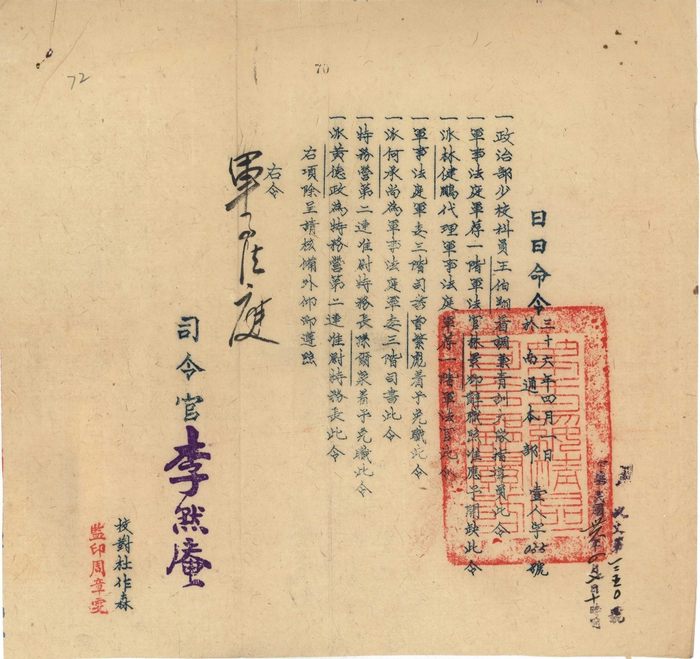 72
70
日日命令
三十六年四月一日
於南通本部
壹人字035號
一政治部少校科員王伯翔著調業青訓大隊指導員此令
一軍事法庭軍荐一階軍法官張景卿辭職照准應予開缺此令
一派林健鵬代理軍事法庭軍荐一階軍法官此令
一軍事法庭軍委三階司書曹繁彪着予免職此令
一派何承尚為軍事法庭軍委三階司書此令
一特務營第二連准尉特務長張爾榮着予免職此令
一派黃德政為特務營第二連准尉特務長此令
右項除呈請核備外仰即遵照
右令
軍法處
司令官 李然庵
校對杜作森
監印周章雯